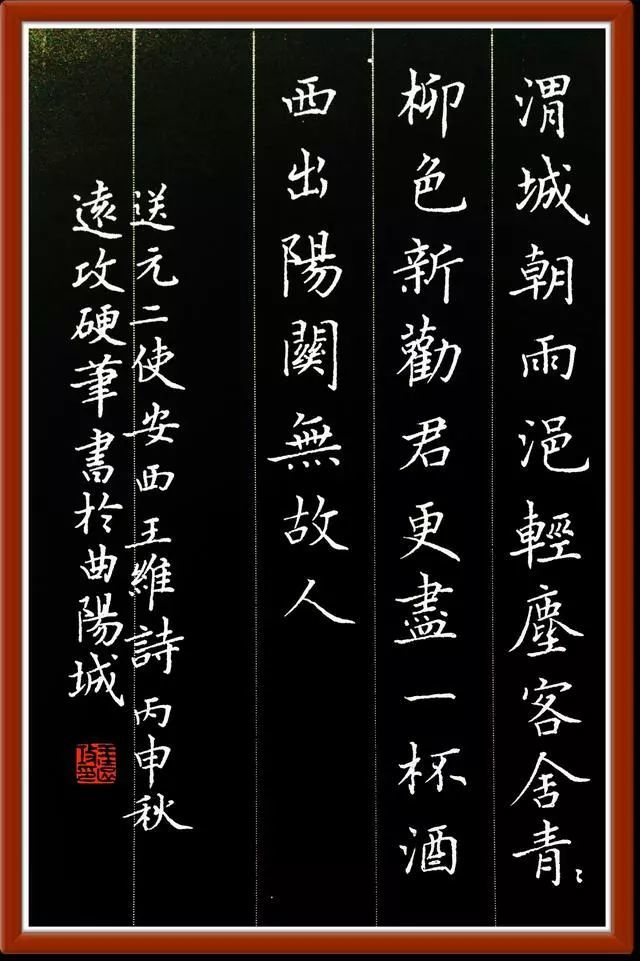 渭城朝雨浥輕塵客舍青〻
柳色新勸君更盡一杯酒
西出陽關無故人
送元二使安西王維詩丙申秋
遠攻硬筆書於曲陽城